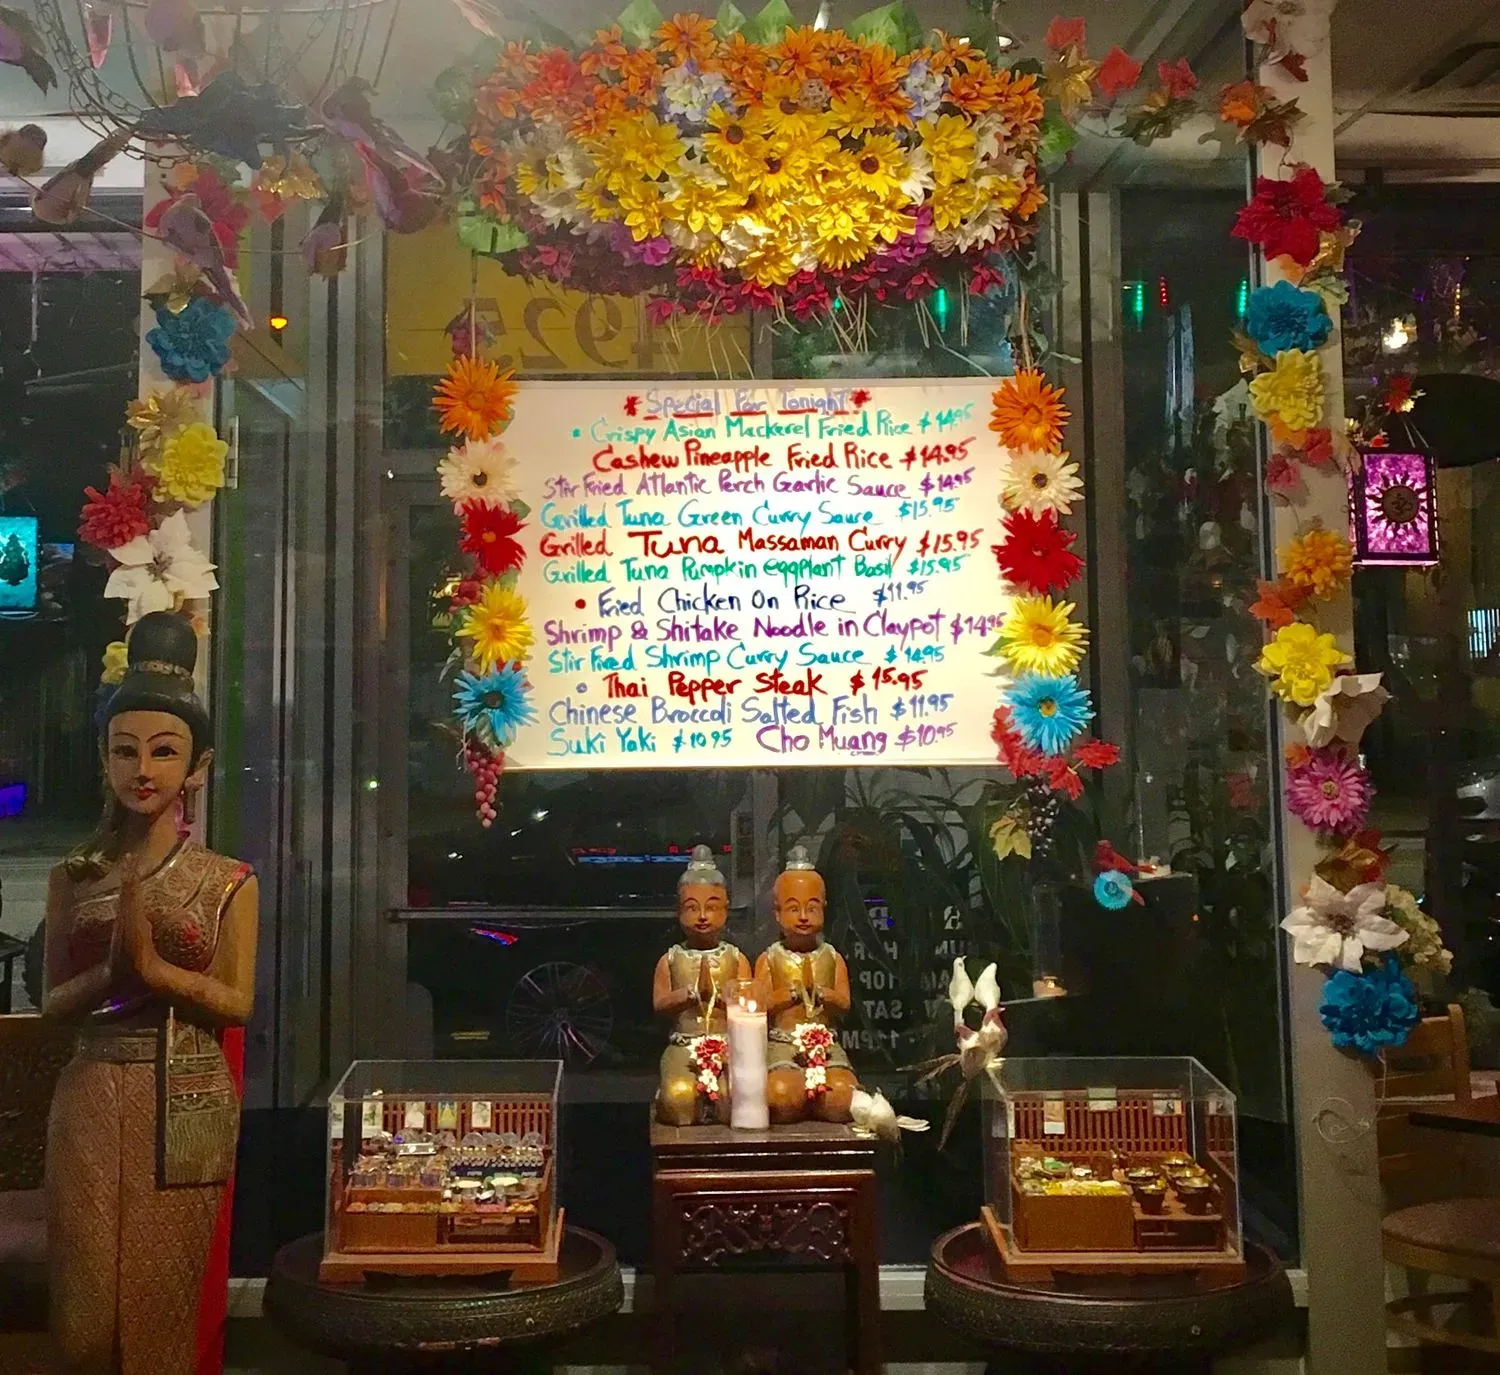 4925
* Special For Tonight *
• Crispy Asian Mackerel Fried Rice $14.95
Cashew Pineapple Fried Rice $14.95
Stir Fried Atlantic Perch Garlic Sauce $14.95
Grilled Tuna Green Curry Sauce $15.95
Grilled Tuna Massaman Curry $15.95
Grilled Tuna Pumpkin eggplant Basil $15.95
• Fried Chicken On Rice $11.95
Shrimp & Shitake Noodle in Claypot $14.95
Stir Fired Shrimp Curry Sauce $14.95
• Thai Pepper Steak $15.95
Chinese Broccoli Salted Fish $11.95
Suki Yaki $10.95 Cho Muang $10.95